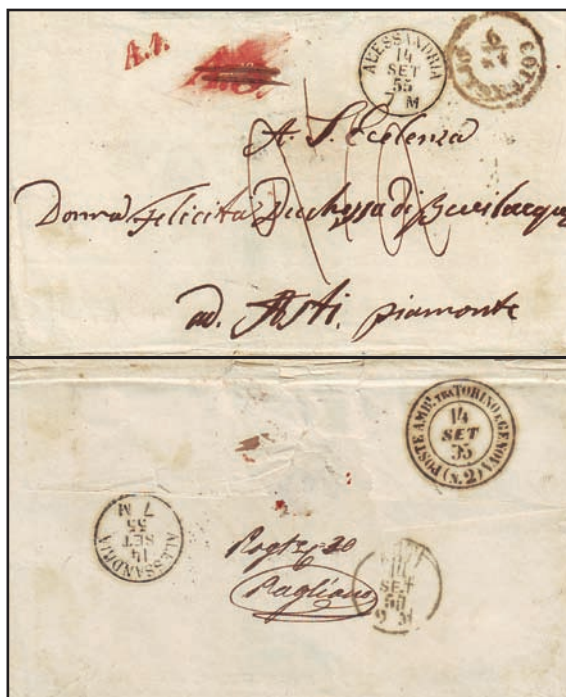 A.1.
ALESSANDRIA
14
SET
55
7 M
A. S. Ecelenza
Donna Felicita Duchessa di Bevilacqua
ad. Asti. piamonte
(POSTE AMB.ⁱ TRA TORINO E GENOVA)
(N. 2)
14
SET
55
ALESSANDRIA
14
SET
55
7 M
Pagliano
SET